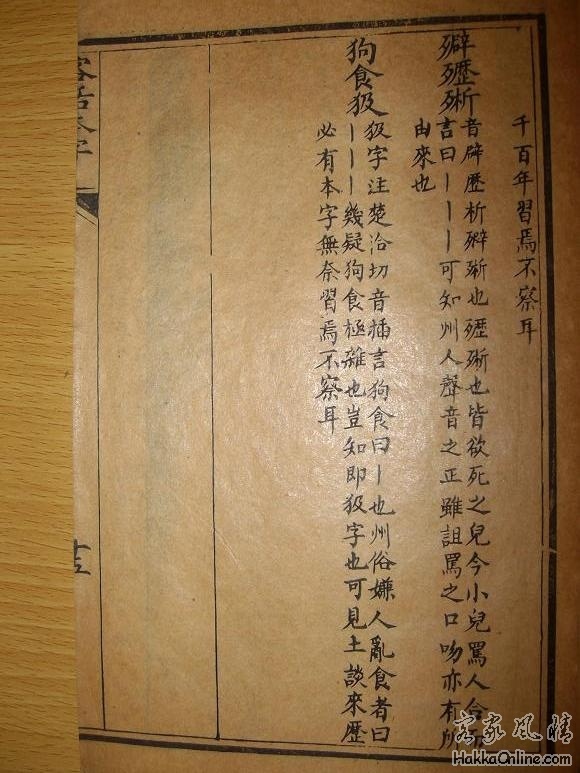 千百年習焉不察耳
音辟歷析也也皆欲死之皃今小兒罵人
言曰丨丨丨可知州人聲音之正雖詛罵之口吻亦有所
由來也
狗食
字注楚洽切音插言狗食曰丨也州俗嫌人亂食者曰
丨丨丨幾疑狗食極雜也豈知即字也可見土談來歷
必有本字無奈習焉不察耳
客話本字
十三
客家風情
HakkaOnline.com